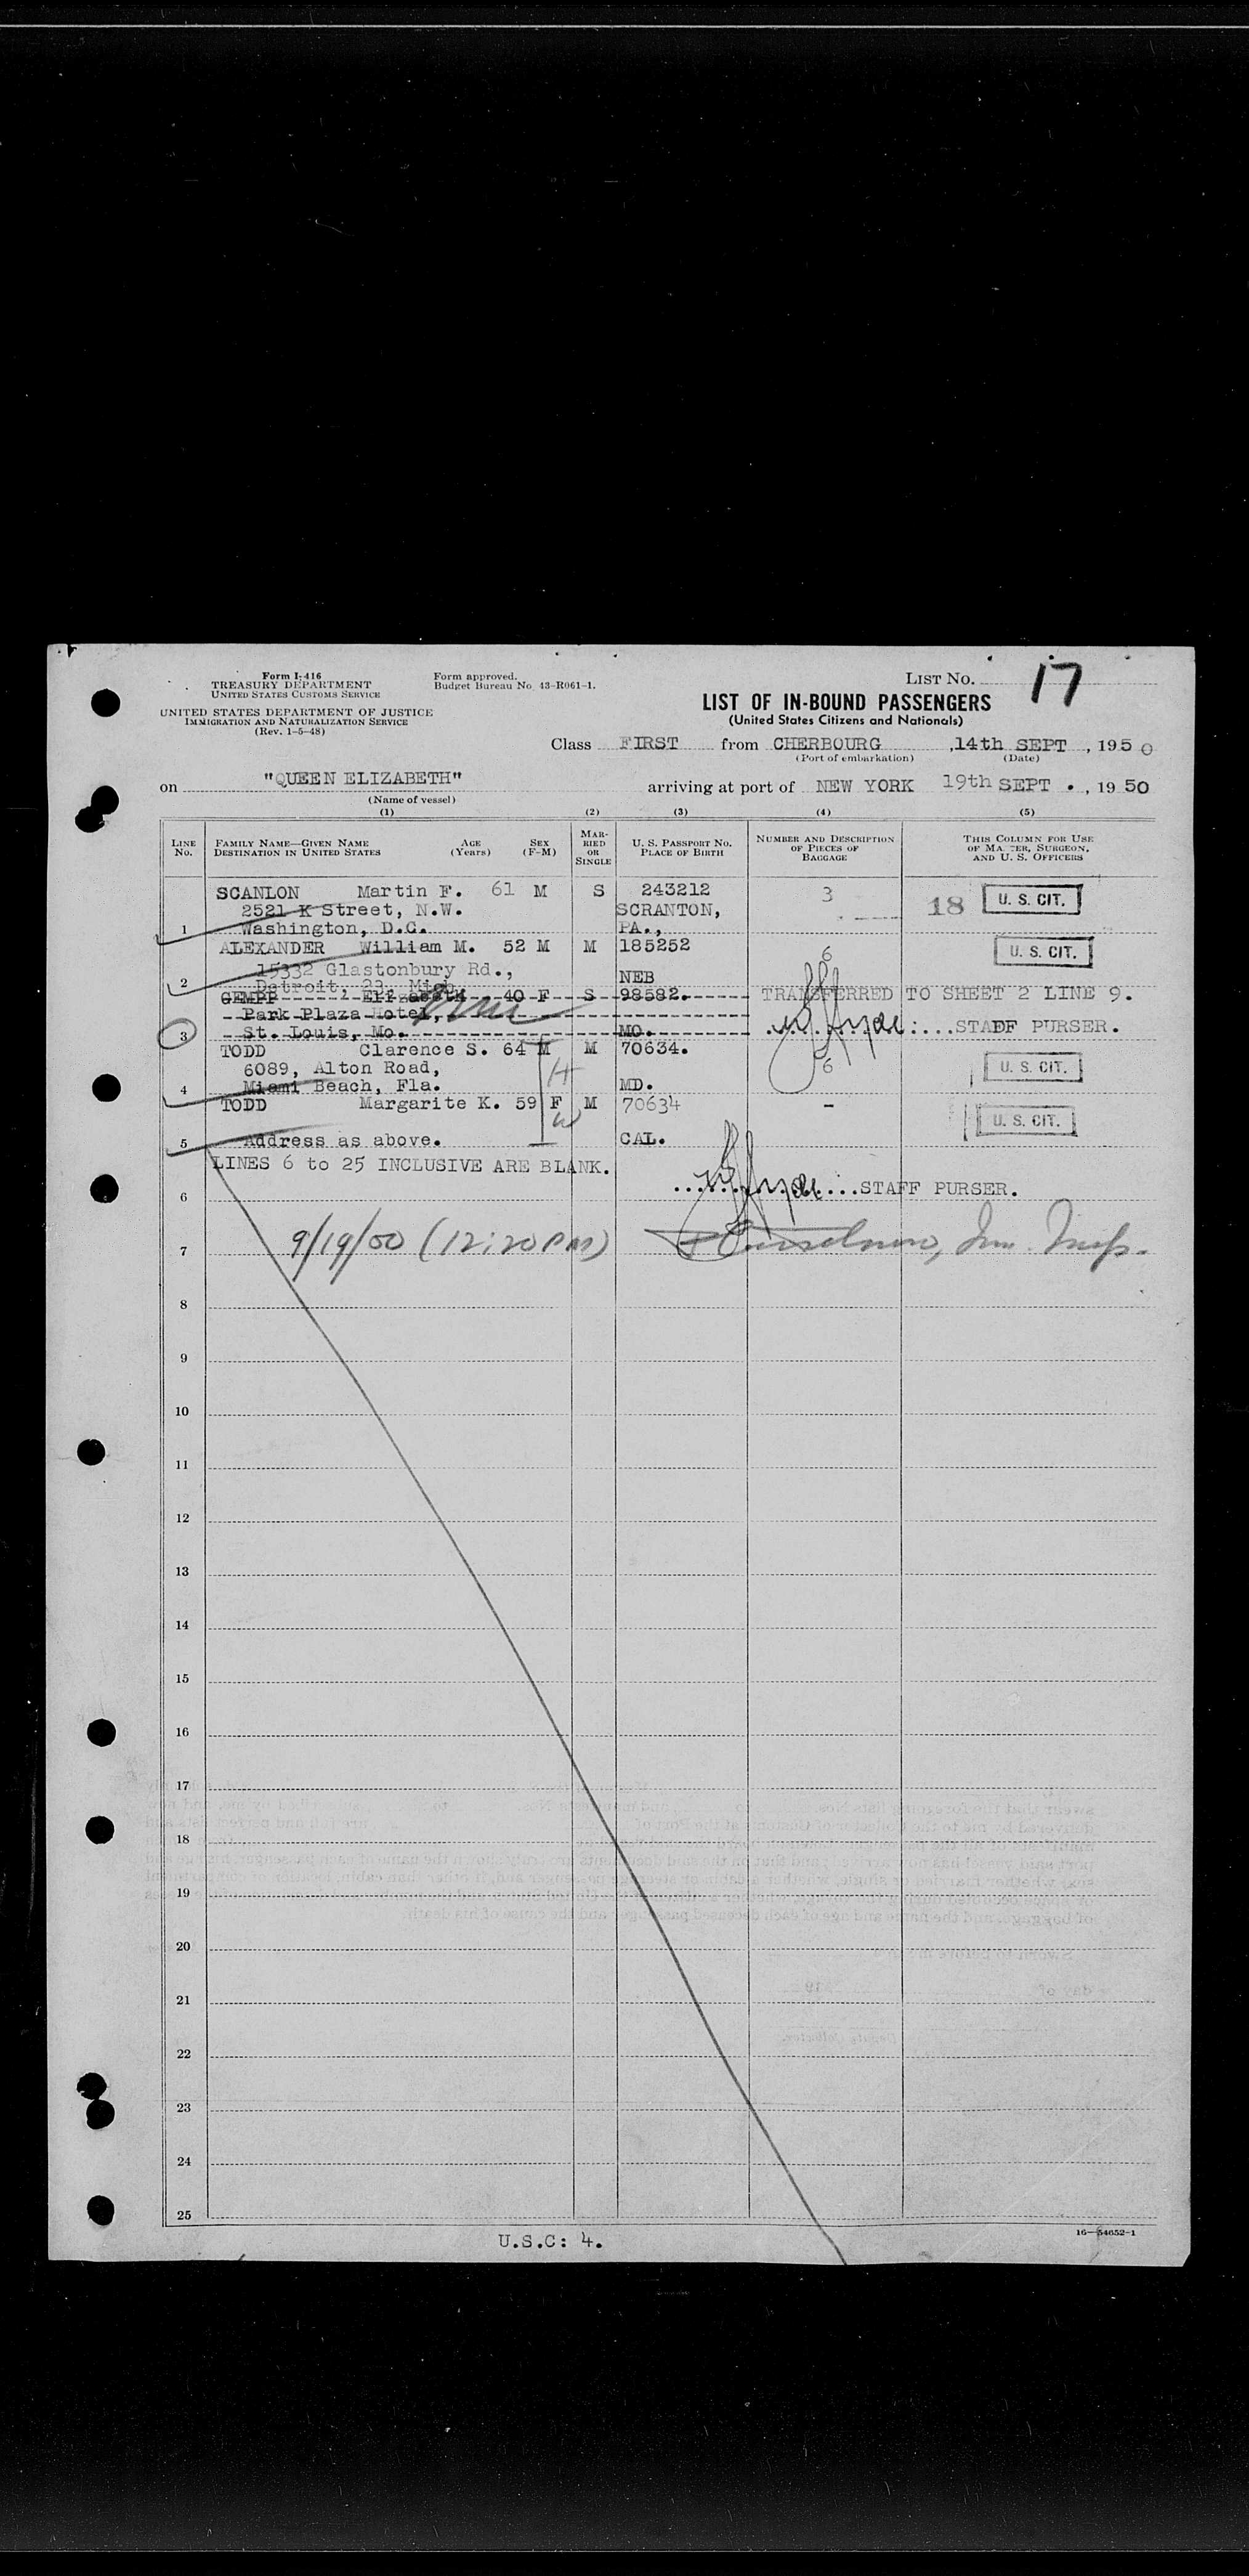 Form I-416
TREASURY DEPARTMENT
UNITED STATES CUSTOMS SERVICE
Form approved.
Budget Bureau No. 43-R061-1.
LIST NO. 17
UNITED STATES DEPARTMENT OF JUSTICE
IMMIGRATION AND NATURALIZATION SERVICE
(Rev. 1-5-48)
LIST OF IN-BOUND PASSENGERS
(United States Citizens and Nationals)
Class FIRST from CHERBOURG, 14th SEPT, 1950
(Port of embarkation) (Date)
on "QUEEN ELIZABETH" arriving at port of NEW YORK 19th SEPT., 1950
(Name of vessel)
(1) (2) (3) (4) (5)
LINE No. FAMILY NAME—GIVEN NAME DESTINATION IN UNITED STATES AGE (Years) SEX (F-M) MARRIED OR SINGLE U. S. PASSPORT NO. PLACE OF BIRTH NUMBER AND DESCRIPTION OF PIECES OF BAGGAGE THIS COLUMN FOR USE OF MASTER, SURGEON, AND U. S. OFFICERS
SCANLON Martin F. 61 M S 243212 3 18 U. S. CIT.
2521 K Street, N.W. SCRANTON,
1 Washington, D.C. PA.,
ALEXANDER William M. 52 M M 185252 6 U. S. CIT.
15332 Glastonbury Rd., NEB
2 Detroit, 23, Mich.
GEMPP Elizabeth 40 F S 98582. TRANSFERRED TO SHEET 2 LINE 9.
Park Plaza Hotel,
3 St. Louis, Mo. MO. STAFF PURSER.
TODD Clarence S. 64 M M 70634. 6 U. S. CIT.
6089, Alton Road, H
4 Miami Beach, Fla. MD.
TODD Margarite K. 59 F M 70634 - U. S. CIT.
W
5 Address as above. CAL.
LINES 6 to 25 INCLUSIVE ARE BLANK.
6 STAFF PURSER.
7 9/19/50 (12:20 PM) Imm. Insp.
8
9
10
11
12
13
14
15
16
17
18
19
20
21
22
23
24
25
U.S.C: 4.
16—54652-1